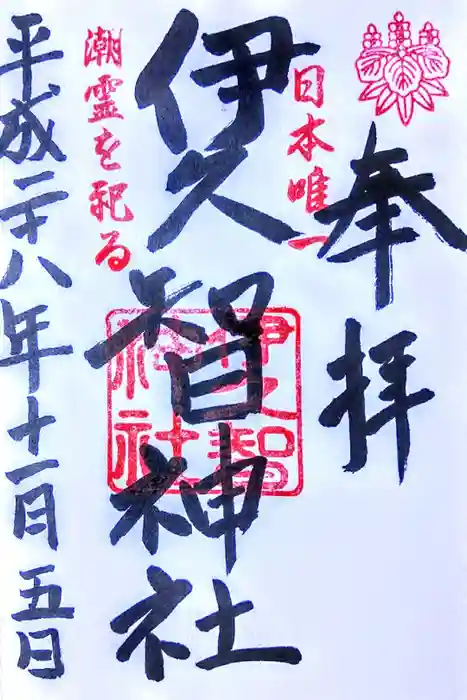 奉拝
日本唯一
伊久智神社
潮霊を祀る
平成二十八年十一月五日
伊久智神社